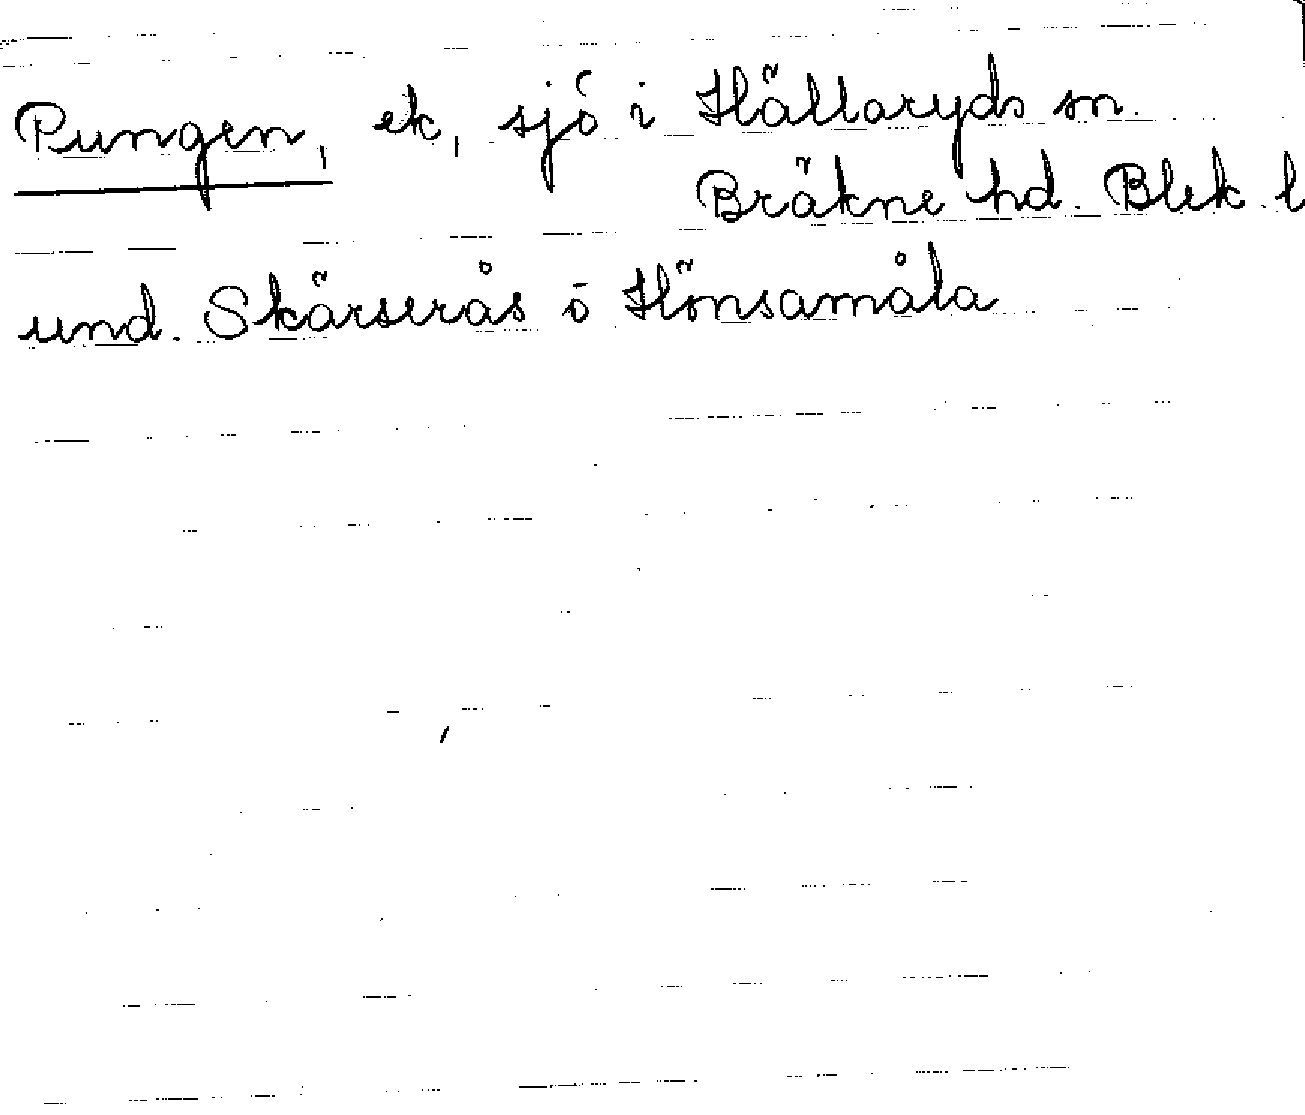 Pungen, ek, sjö i Hällaryds sn.
Bräkne hd. Blek. l
und. Skärserås ö Hönsamåla